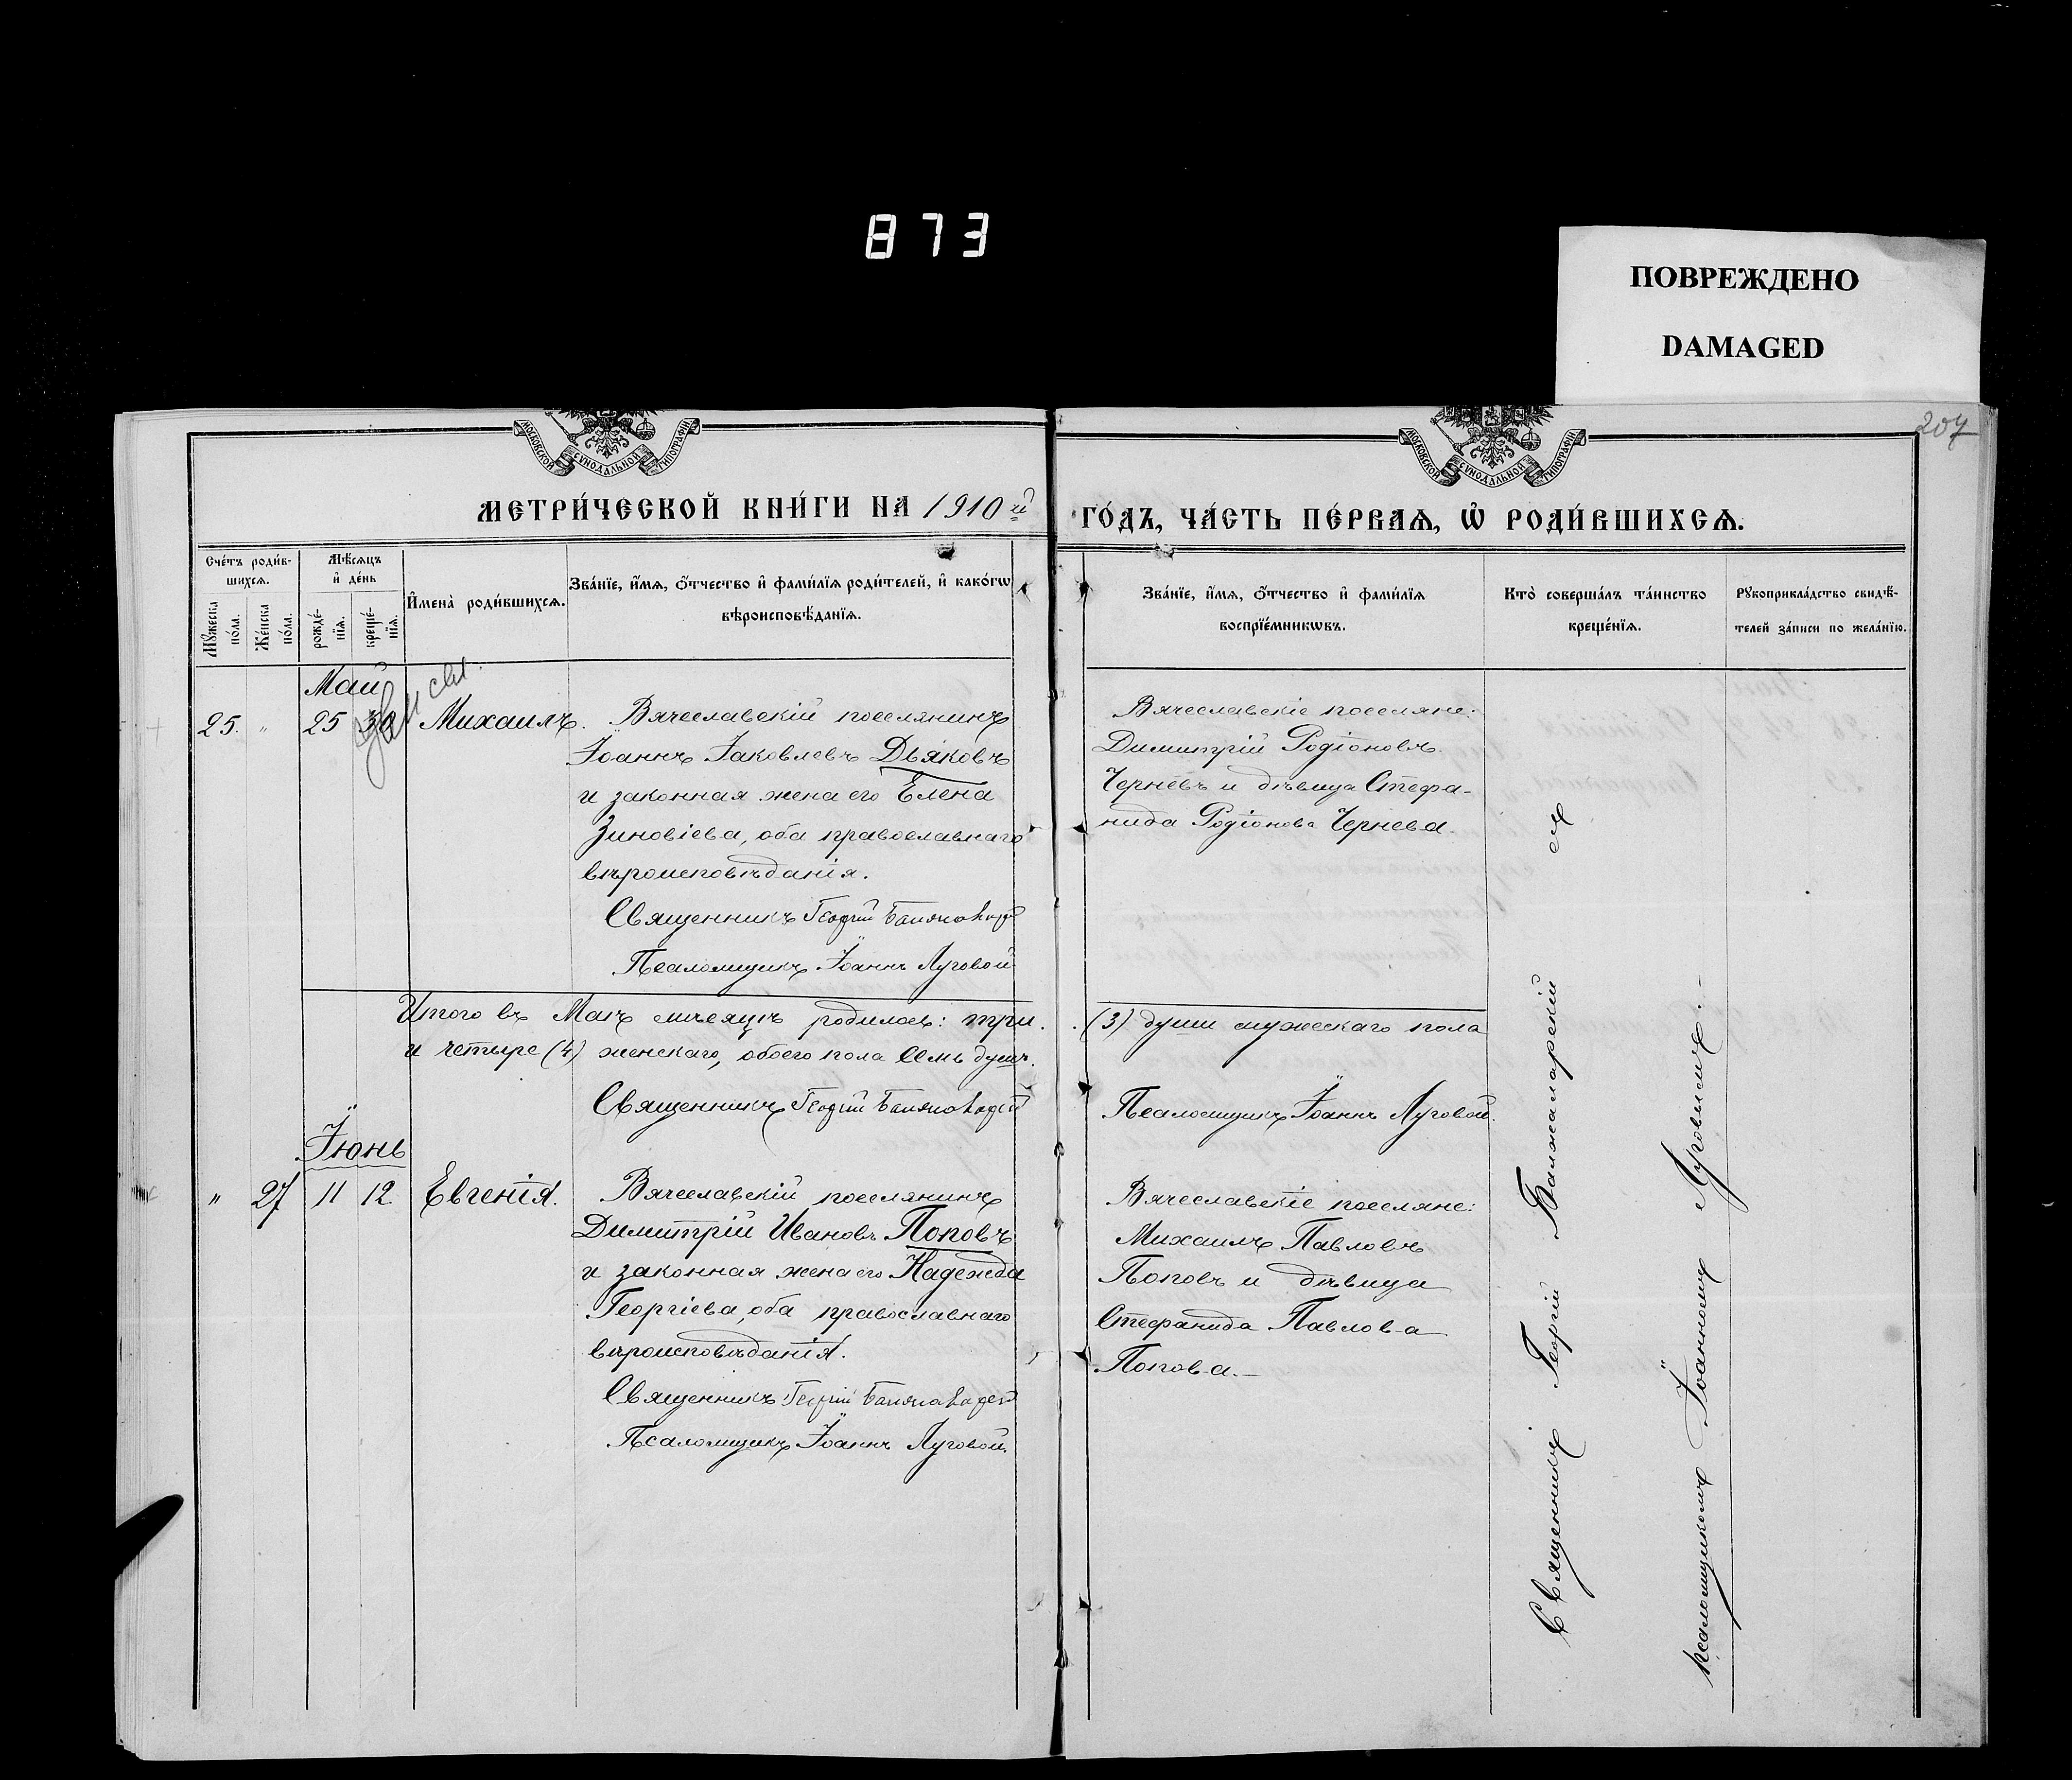 873
ПОВРЕЖДЕНО
DAMAGED
207
МОСКОВСКОЙ СѴНОДАЛЬНОЙ ТИПОГРАФІИ
МОСКОВСКОЙ СѴНОДАЛЬНОЙ ТИПОГРАФІИ
МЕТРИ́ЧЕСКОЙ КНИ́ГИ НА 1910й
ГО́ДЪ, ЧА́СТЬ ПЕ́РВАѦ, Ѡ҆ РОДИ́ВШИХСѦ.
Сче́тъ роди́в-
шихсѧ.
Мѣ́сѧцъ
и҆ де́нь
Мꙋ́жеска
по́ла.
Же́нска
по́ла.
рожде́-
нїѧ.
креще́-
нїѧ.
И҆мена̀ роди́вшихсѧ.
Зва́нїе, и҆́мѧ, ѻ҆́тчество и҆ фами́лїѧ роди́телей, и҆ како́гѡ
вѣроисповѣ́данїѧ.
Зва́нїе, и҆́мѧ, ѻ҆́тчество и҆ фами́лїѧ
воспрїе́мникѡвъ.
Кто̀ соверша́лъ та́инство
креще́нїѧ.
Рꙋкоприкла́дство свидѣ́-
телей за́писи по жела́нїю.
Май
25. " 25 30 Михаилъ. Вячеславскій поселянинъ
Іоаннъ Іаковлевъ Дьяковъ
и законная жена его Елена
Зиновіева, оба православнаго
вѣроисповѣданія.
Священникъ Георгій
Псаломщикъ Іоаннъ Луговой.
Вячеславскіе поселяне:
Димитрій Родіоновъ
Черневъ и дѣвица Стефа-
нида Родіонова Чернева.
Итого въ Маѣ мѣсяцѣ родилось: три
(3) души мужескаго пола
и четыре (4) женскаго, обоего пола семь душъ.
Священникъ Георгій
Псаломщикъ Іоаннъ Луговой.
Іюнь
" 27 11 12. Евгенія. Вячеславскій поселянинъ
Димитрій Ивановъ Поповъ
и законная жена его Надежда
Георгіева, оба православнаго
вѣроисповѣданія.
Священникъ Георгій
Псаломщикъ Іоаннъ Луговой.
Вячеславскіе поселяне:
Михаилъ Павловъ
Поповъ и дѣвица
Стефанида Павлова
Попова.—
Священникъ Георгій съ
псаломщикомъ Іоанномъ Луговымъ.—